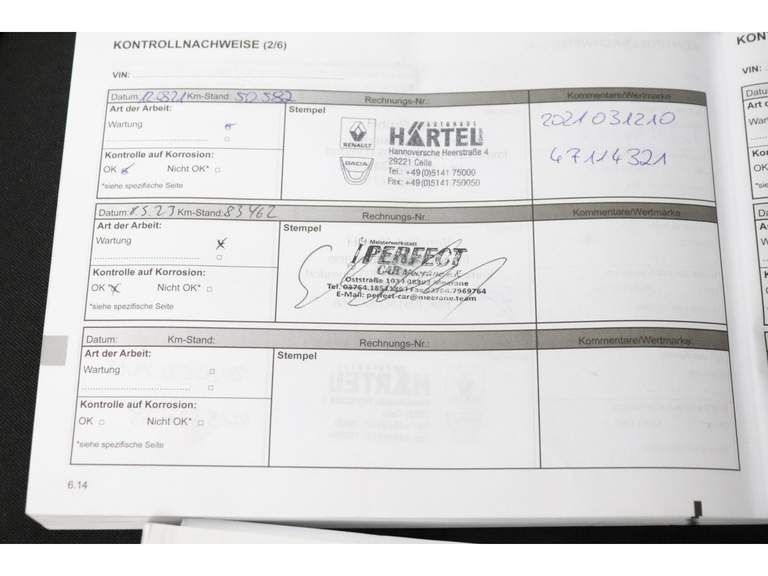 KONTROLLNACHWEISE (2/6)
VIN:
Datum: 12.08.21 Km-Stand: 50.582 Rechnungs-Nr.: Kommentare/Wertmarke
Art der Arbeit: Stempel
Wartung
Kontrolle auf Korrosion:
OK Nicht OK*
*siehe spezifische Seite
RENAULT
DACIA
AUTOHAUS
HÄRTEL
Hannoversche Heerstraße 4
29221 Celle
Tel.: +49(0)5141 75000
Fax: +49(0)5141 750050
2021031210
47114321
Datum: 8.5.23 Km-Stand: 83462 Rechnungs-Nr.: Kommentare/Wertmarke
Art der Arbeit: Stempel
Wartung
Kontrolle auf Korrosion:
OK Nicht OK*
*siehe spezifische Seite
Meisterwerkstatt
PERFECT
CAR Meerane
Oststraße 103 | 08393 Meerane
E-Mail: perfect-car@meerane.team
Datum: Km-Stand: Rechnungs-Nr.: Kommentare/Wertmarke
Art der Arbeit: Stempel
Wartung
Kontrolle auf Korrosion:
OK Nicht OK*
*siehe spezifische Seite
6.14
KON
VIN: